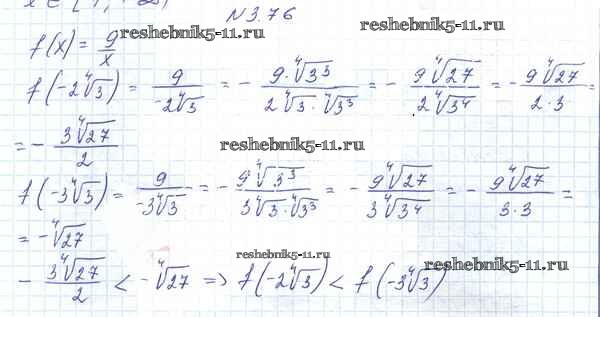 N 3.76
reshebnik5-11.ru
reshebnik5-11.ru
f(x) = 9/x
f(-2∜3) = 9/(-2∜3) = - (9·∜3³)/(2∜3·∜3³) = - (9∜27)/(2∜3⁴) = - (9∜27)/(2·3) =
= - (3∜27)/2
reshebnik5-11.ru
f(-3∜3) = 9/(-3∜3) = - (9·∜3³)/(3∜3·∜3³) = - (9∜27)/(3∜3⁴) = - (9∜27)/(3·3) =
= -∜27
reshebnik5-11.ru
reshebnik5-11.ru
- (3∜27)/2 < -∜27 => f(-2∜3) < f(-3∜3)